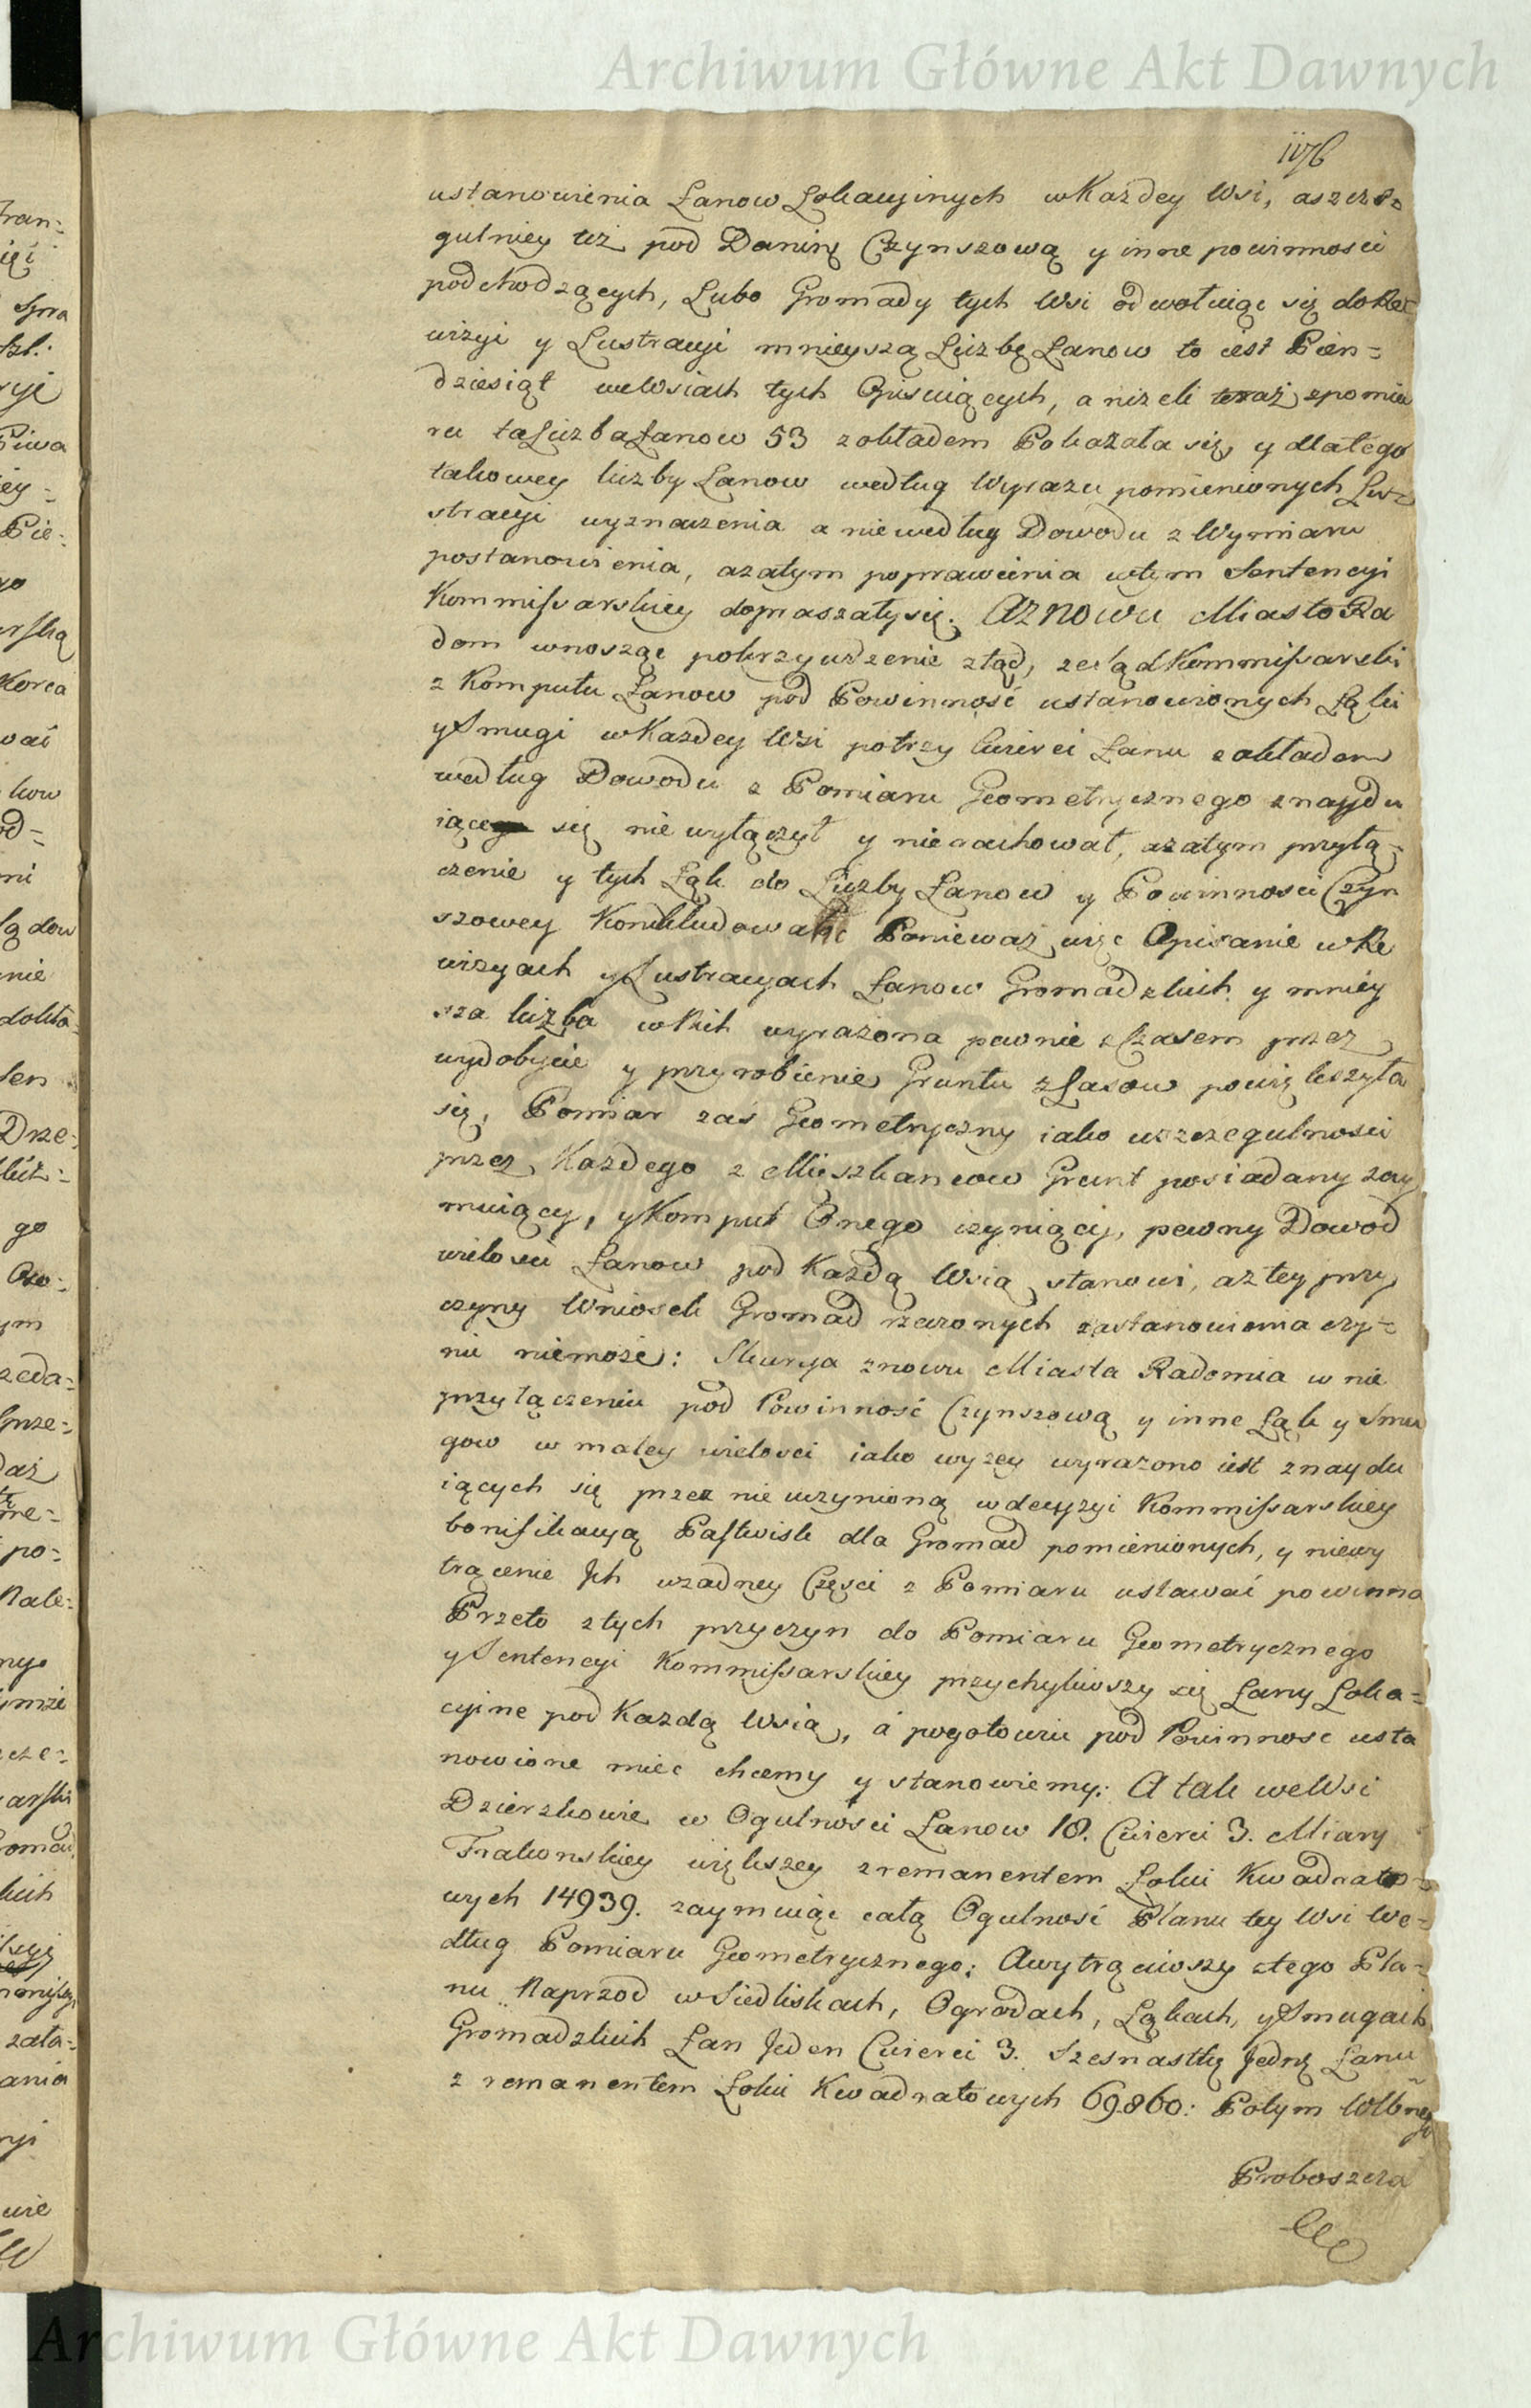 Archiwum Główne Akt Dawnych
1176
ustanowienia Łanow Lokacyinych w Każdey Wsi, a szcze-
gulniey też pod Daninę Czynszową y inne powinnosci
podchodzących, Lubo Gromady tych Wsi odwołuiąc się do Re-
wizyi y Lustracyi mnieyszą Liczbę Łanow to iest Pien-
dziesiąt we Wsiach tych Opisuiących, a niżeli teraz z pomia
ru ta Liczba Łanow 53 z okładem Pokazała się, y dlatego
takowey liczby Łanow według Wyrazu pomienionych Lu-
stracyi wyznaczenia a nie według Dowodu z Wymiaru
postanowienia, a zatym poprawienia w tym Sentencyi
Kommissarskiey dopraszały się. A znowu Miasto Ra
dom wnosząc pokrzywdzenie ztąd, ze Sąd Kommissarski
z Komputu Łanow pod Powinność ustanowionych Łąki
y Smugi w Kazdey Wsi po trzy cwierci Łanu z okładem
według Dowodu z Pomiaru Geometrycznego znaydu
iące się nie wyłączył y nie rachował, a zatym przyłą-
czenie y tych Łąk do Liczby Łanow y Powinności Czyn
szowey Konkludował: Ponieważ więc Opisanie w Re
wizyach y Lustracyach Łanow Gromadzkich y mniey
sza liczba w Nich wyrażona pewnie z Czasem przez
wydobycie y przyrobienie Gruntu z Lasow powiększyła
się, Pomiar zaś Geometryczny iako w szczegulnosci
przez Każdego z Mieszkancow Grunt posiadany zay
muiący, y Komput Onego czyniący, pewny Dowod
wielosci Łanow pod Każdą Wsią stanowi, a z tey przy
czyny Wniosek Gromad rzeczonych zastanowienia czy-
nić niemoże: Skarga znowu Miasta Radomia w nie
przyłączeniu pod Powinność Czynszową y inne Łąk y Smu
gow w małey wielosci iako wyzey wyrażono iest znaydu
iących się przez nie uczynioną w decyzyi Kommissarskiey
bonifikacyą Pastwisk dla Gromad pomienionych, y niewy
trącenie Ich w zadney Częsci z Pomiaru ustawać powinna
Przeto z tych przyczyn do Pomiaru Geometrycznego
y Sentencyi Kommissarskiey przychyliwszy się Łany Loka-
cyine pod Kazdą Wsią, á pogotowiu pod Powinnosc usta
nowione miec chcemy y stanowiemy: A tak we Wsi
Dzierzkowie w Ogulności Łanow 18. Cwierci 3. Miary
Frakonskiey większey z remanentem Łokci Kwadrato-
wych 14939. zaymuiąc całą Ogulność Planu tey Wsi We-
dług Pomiaru Geometrycznego: A wytrąciwszy z tego Pla-
nu Naprzod w Siedliskach, Ogrodach, Łąkach, y Smugach
Gromadzkich Łan Jeden Cwierci 3. Szesnastkę Jednę Łanu
z remanentem Łokci Kwadratowych 69860: Potym Wbneg
Proboszcza
Archiwum Główne Akt Dawnych